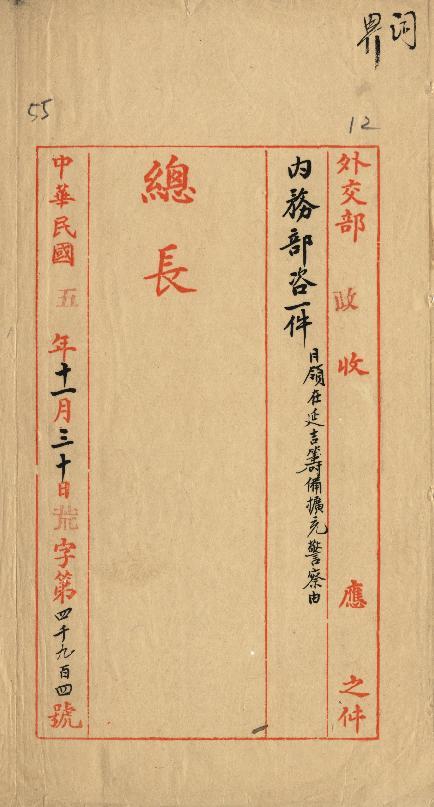 界詞
55
12
外交部 政 收 應 之件
內務部咨一件 日領在延吉籌備擴充警察由
總長
中華民國五年十一月三十日荒字第四千九百四號